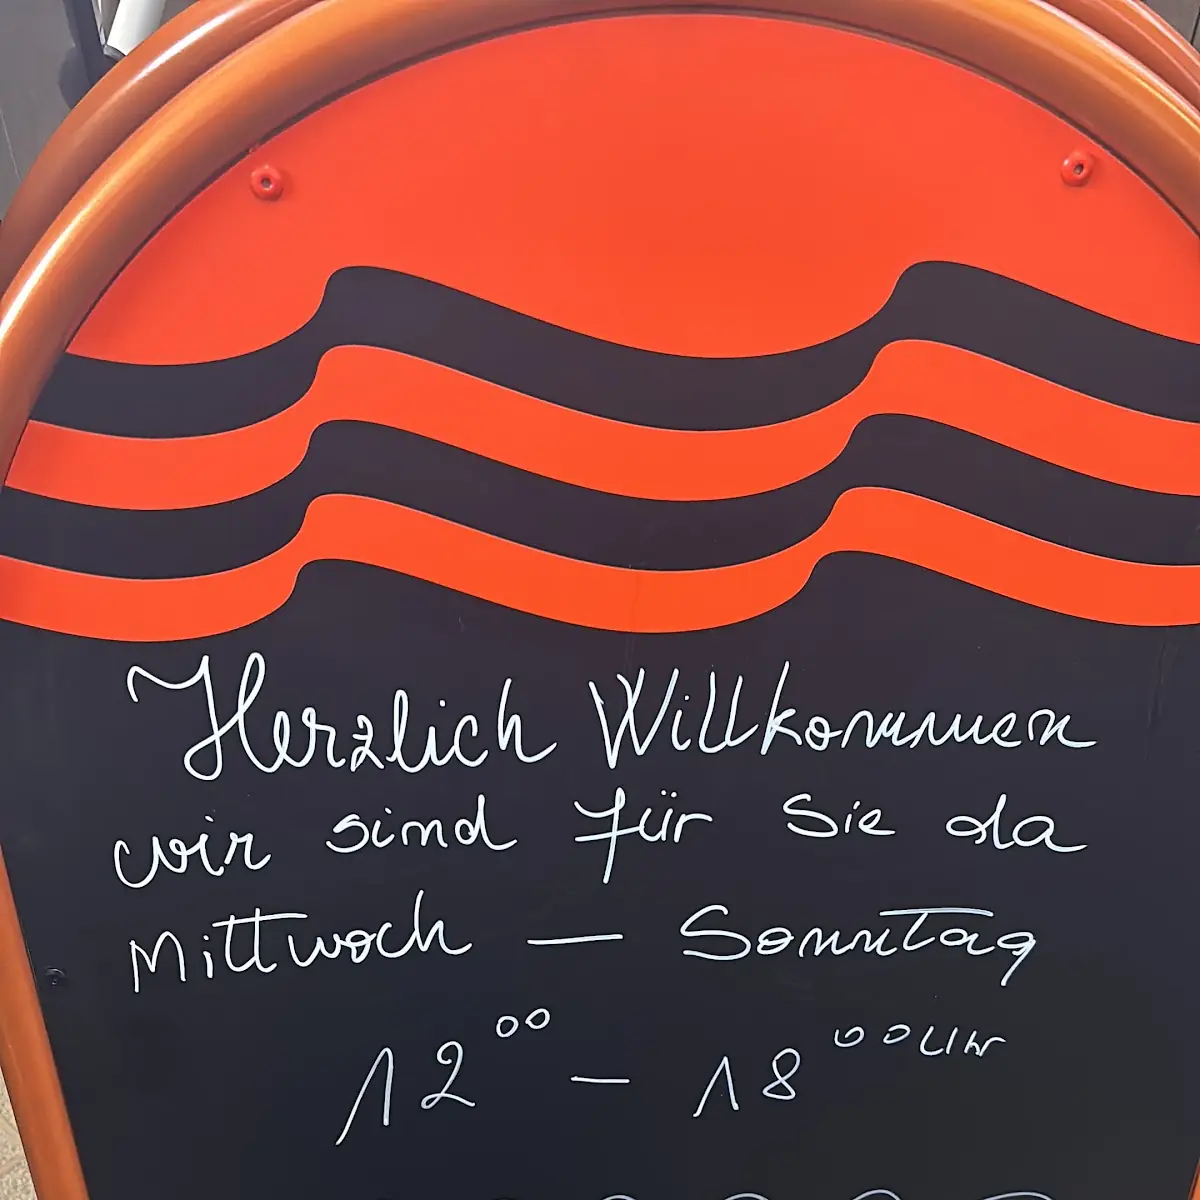 Herzlich Willkommen
wir sind für Sie da
Mittwoch — Sonntag
12⁰⁰ — 18⁰⁰ Uhr